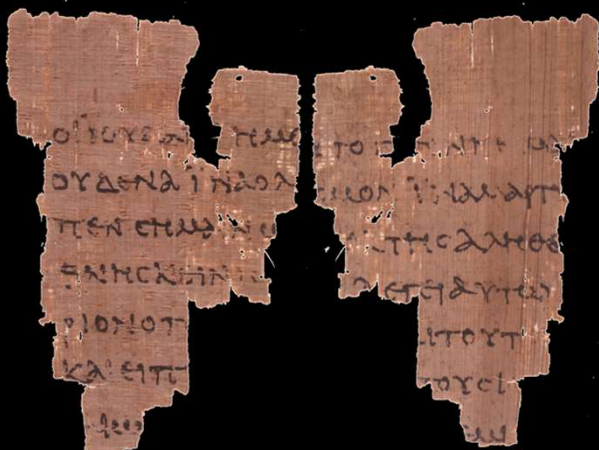 ΟΙ ΙΟΥΔΑΙ ΗΜΕ
ΟΥΔΕΝΑ ΙΝΑ Ο Λ
ΠΕΝ ϹΗΜΑΙΝΩ
ΘΝΗϹΚΕΙΝ
ΡΙΟΝ Ο Π
ΚΑΙ ΕΙΠ
ΑΙΩ
ΤΟ
ϹΜΟΝ ΙΝΑ ΜΑΡΤ
ΤΗϹ ΑΛΗΘΕ
ΛΕΓΕΙ ΑΥΤΩ
ΑΙ ΤΟΥΤ
ΤΟΥϹ Ι
ΜΙ